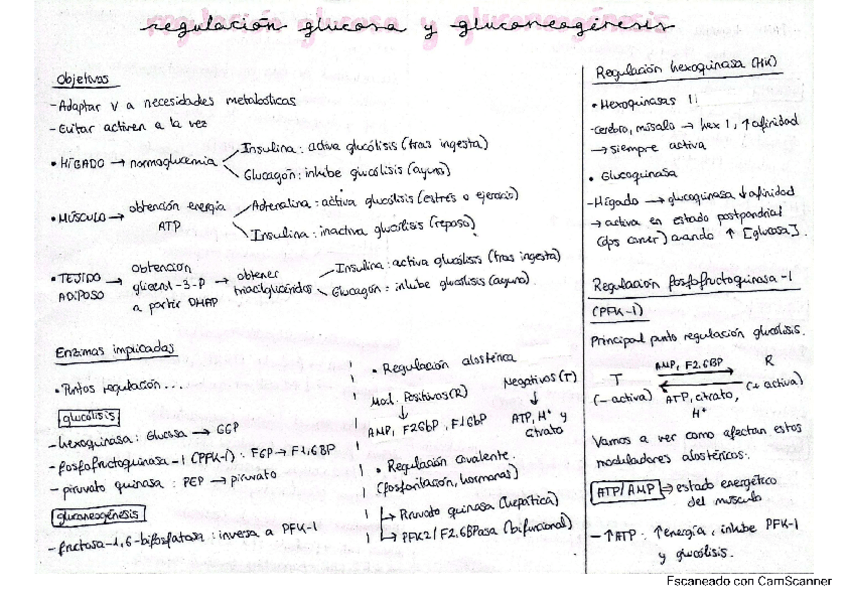 regulación glucosa y gluconeogénesis
Objetivos
- Adaptar V a necesidades metabólicas
- Evitar activen a la vez
• HÍGADO → normoglucemia
Insulina: activa glucólisis (tras ingesta)
Glucagón: inhibe glucólisis (ayuno)
• MÚSCULO → obtención energía
ATP
Adrenalina: activa glucólisis (estrés o ejercicio)
Insulina: inactiva glucólisis (reposo)
• TEJIDO
ADIPOSO → obtención
glicerol-3-P
a partir DHAP → obtener
triacilglicéridos
Insulina: activa glucólisis (tras ingesta)
Glucagón: inhibe glucólisis (ayuno)
Enzimas implicadas
• Puntos regulación...
glucólisis
- hexoquinasa: Glucosa → G6P
- fosfofructoquinasa-1 (PFK-1): F6P → F1,6BP
- piruvato quinasa: PEP → piruvato
gluconeogénesis
- fructosa-1,6-bifosfatasa: inversa a PFK-1
• Regulación alostérica
Mod. Positivos (R)
↓
AMP, F26bP, F16bP
Negativos (T)
↓
ATP, H⁺ y
citrato
• Regulación covalente.
(fosforilación, hormonas)
↳ Piruvato quinasa (hepática)
↳ PFK2/F2,6BPasa (bifuncional)
Regulación hexoquinasa (HK)
• Hexoquinasas 1:
- cerebro, músculo → hex 1, ↑ afinidad
→ siempre activa
• Glucoquinasa
- Hígado → glucoquinasa ↓ afinidad
→ activa en estado postpondrial
(dps comer) cuando ↑ [glucosa].
Regulación fosfofructoquinasa-1
(PFK-1)
Principal punto regulación glucólisis.
AMP, F2,6BP
T
(- activa)
R
(+ activa)
ATP, citrato,
H⁺
Vamos a ver como afectan estos
moduladores alostéricos:
ATP/AMP ⇒ estado energético
del músculo
- ↑ATP: ↑energía, inhibe PFK-1
y glucólisis.
Escaneado con CamScanner